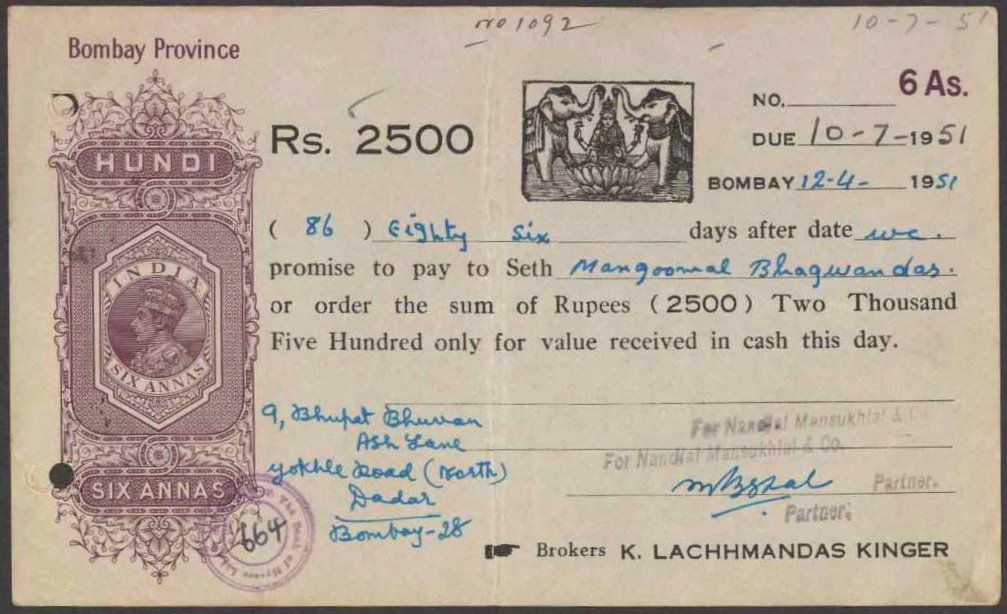 no 1092
10-7-51
Bombay Province
6 As.
NO.
HUNDI
Rs. 2500
DUE 10-7-1951
BOMBAY 12-4- 1951
( 86 ) Eighty Six days after date we.
promise to pay to Seth Mangoomal Bhagwandas.
or order the sum of Rupees (2500) Two Thousand
Five Hundred only for value received in cash this day.
INDIA
SIX ANNAS
9, Bhupat Bhuvan
Ash Lane
Gokhle Road (North)
Dadar
Bombay-28
For Nandlal Mansukhlal & Co.
For Nandlal Mansukhlal & Co.
Partner.
Partner.
SIX ANNAS
664
Brokers K. LACHHMANDAS KINGER